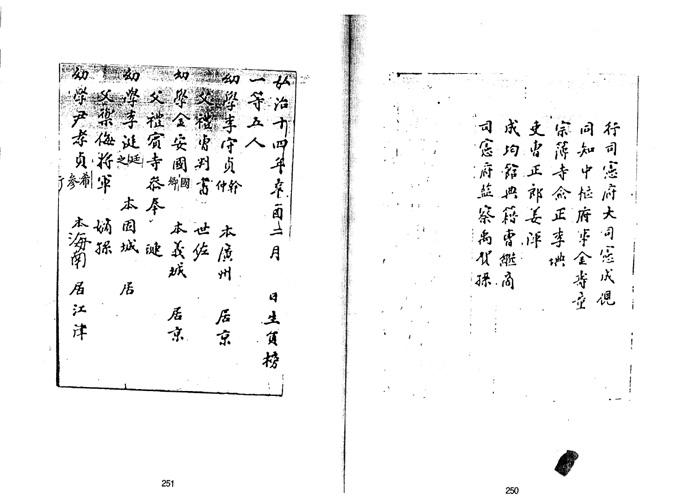 行司憲府大司憲成俔
同知中樞府事金壽童
宗簿寺僉正李㙉
吏曹正郎姜渾
成均館典籍曺繼商
司憲府監察禹賢孫
250
弘治十四年辛酉二月 日生員榜
一等五人
幼學李守貞 幹仲 本廣州 居京
父禮曹判書 世佐
幼學金安國 國卿 本義城 居京
父禮賓寺參奉 璉
幼學李 之 本固城 居
父禦侮將軍 嫡孫
幼學尹孝貞 希參 本海南 居江津
251